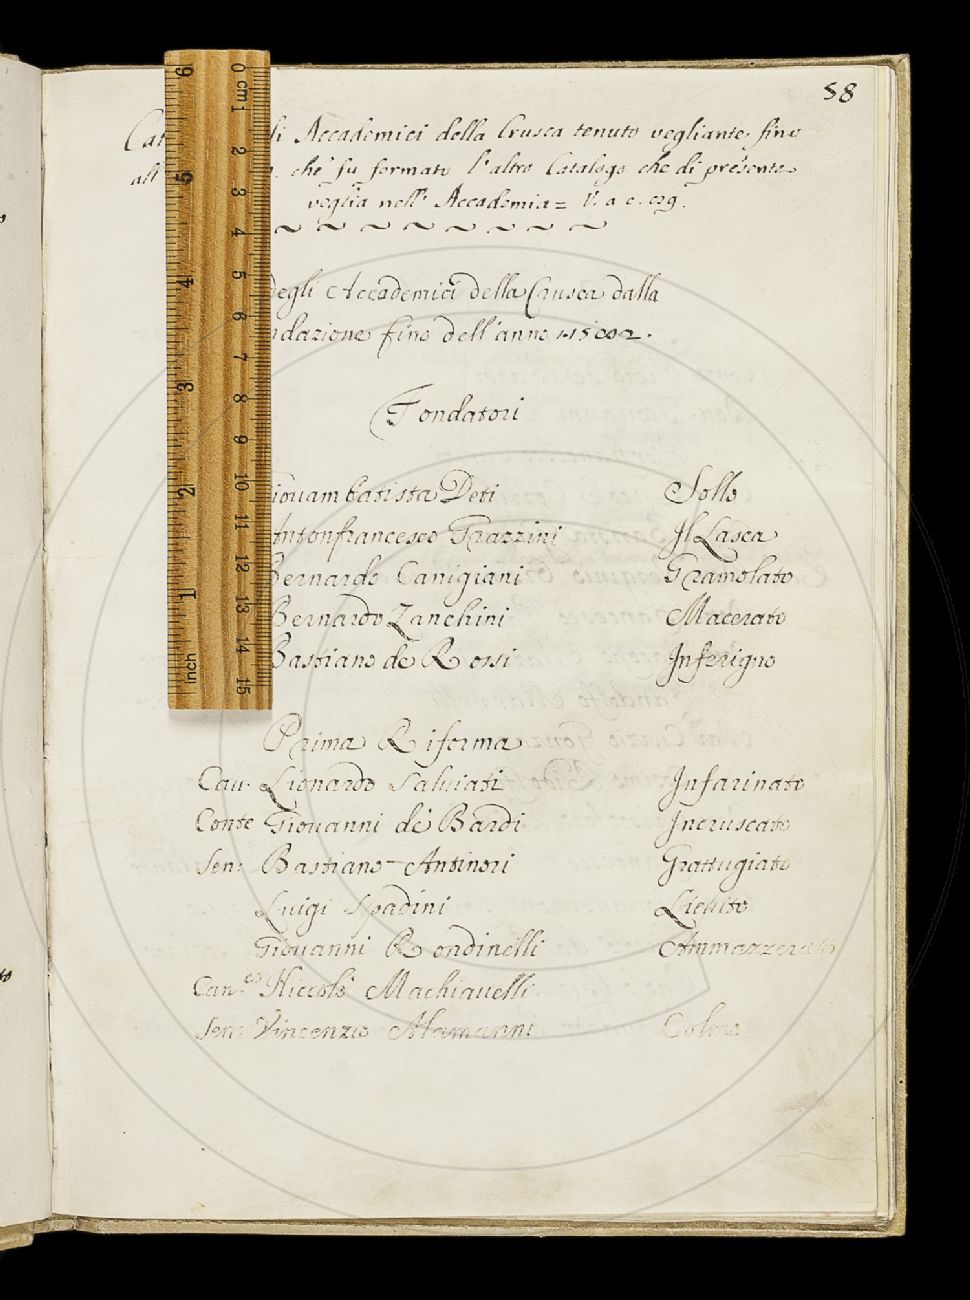 58
Cat di Accademici della Crusca tenuto vegliante fino
all' che fu formato l'altro Catalogo che di presente
veglia nell' Accademia = V. a c. 129.
degli Accademici della Crusca dalla
ndazione fino dell'anno
Fondatori
iouambatista Deti Sollo
Antonfrancesco Grazzini Il Lasca
Bernardo Canigiani Gramolato
Bernardo Zanchini Macerato
Bastiano de Rossi Inferigno
Prima Riforma
Cau. Lionardo Saluiati Infarinato
Conte Giouanni de' Bardi Incruscato
Sen: Bastiano Antinori Grattugiato
Luigi Spadini Lieuito
Giouanni Rondinelli Ammazzerato
Can.co Niccolò Machiauelli
Sen: Vincenzio Alamanni Colmo
inch 1 2 3 4 5 6
0 cm 1 2 3 4 5 6 7 8 9 10 11 12 13 14 15